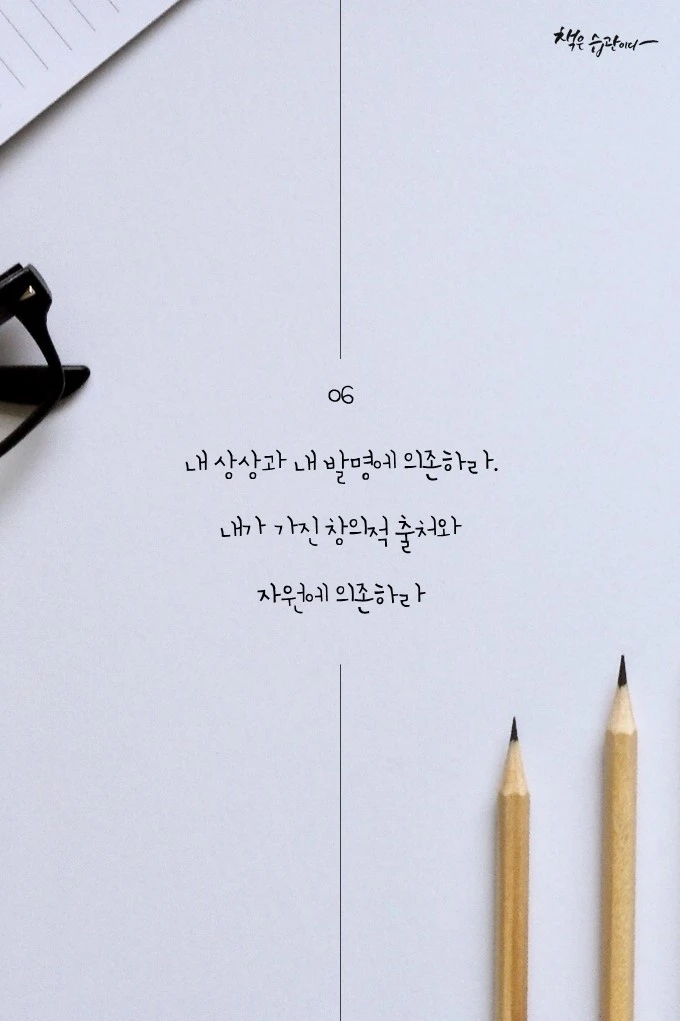 책은 습관이다
06
내 상상과 내 발명에 의존하라.
내가 가진 창의적 출처와
자원에 의존하라